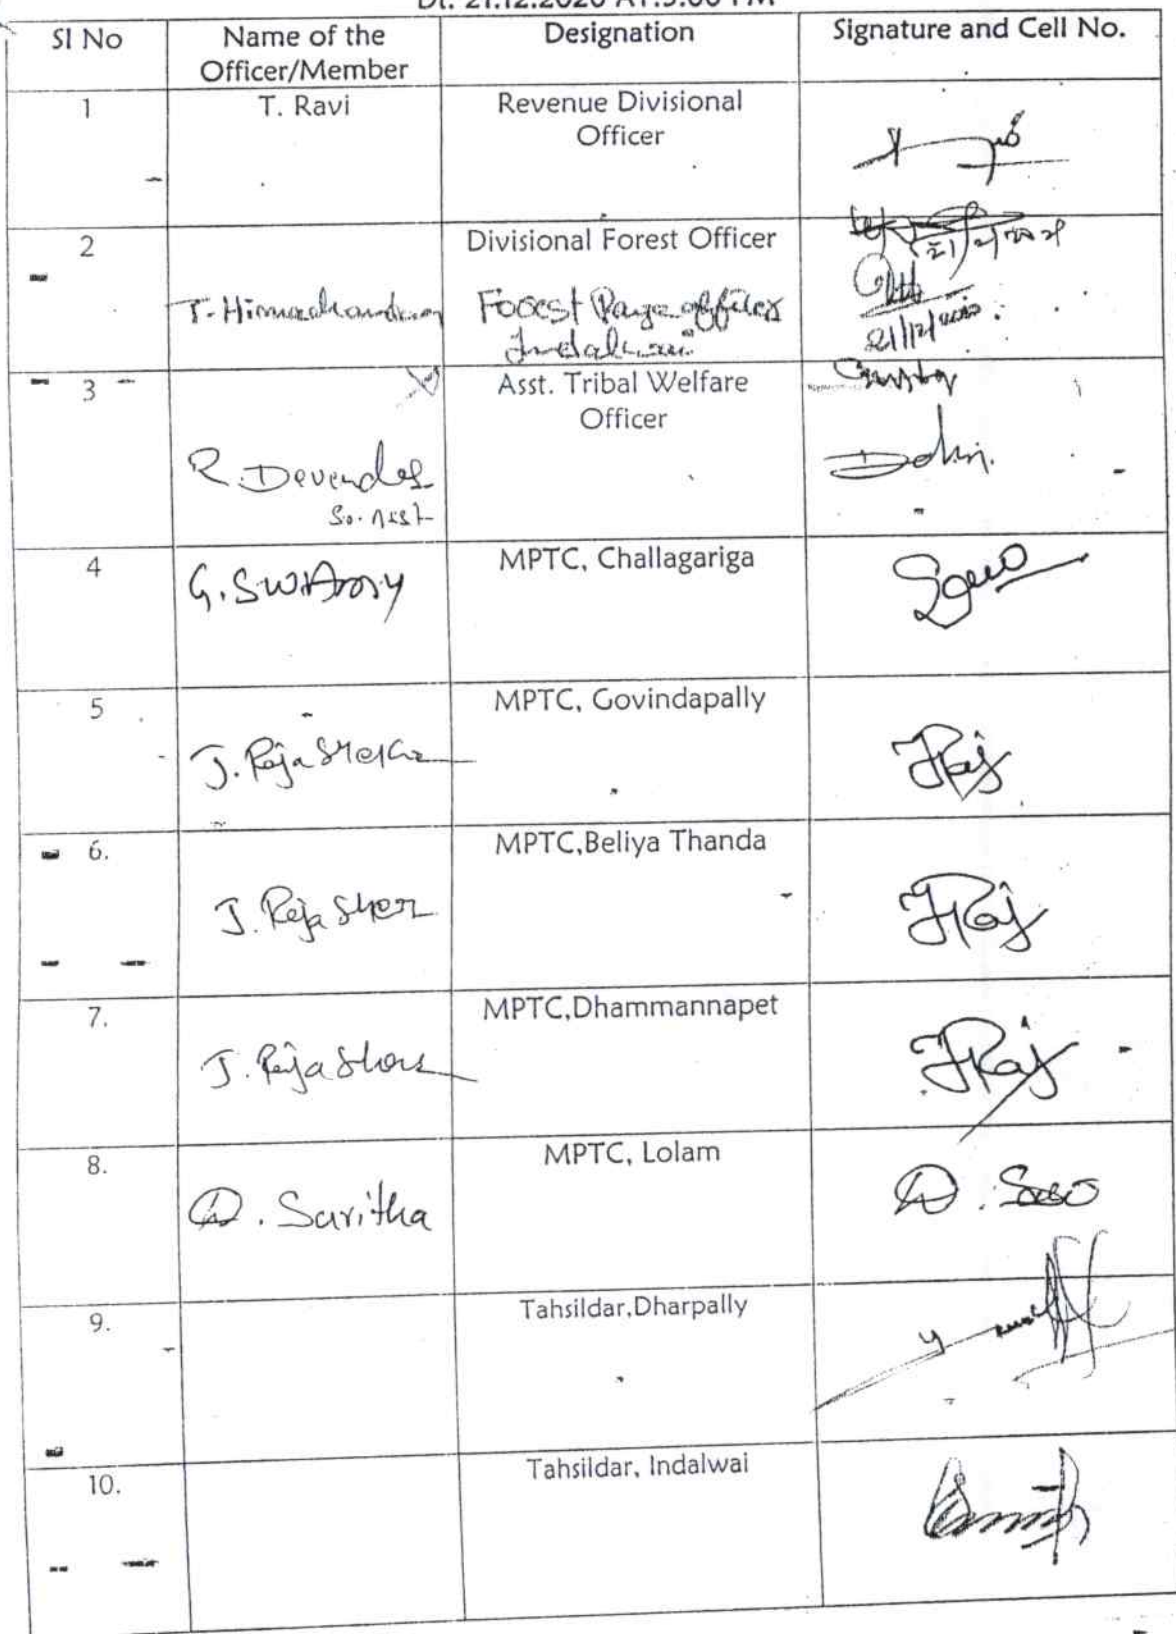 Dt. 21.12.2020 AT.3.00 PM
Sl No
Name of the
Officer/Member
Designation
Signature and Cell No.
1
T. Ravi
Revenue Divisional
Officer
2
T. Himachandran
Divisional Forest Officer
Forest Range officer
Indalwai
21/12/2020
3
R. Devendes
So. Asst
Asst. Tribal Welfare
Officer
4
G. SWAmy
MPTC, Challagariga
5
J. Raja
MPTC, Govindapally
JRaj
6.
J. Raja
MPTC,Beliya Thanda
JRaj
7.
J. Raja
MPTC,Dhammannapet
JRaj
8.
D. Saritha
MPTC, Lolam
9.
Tahsildar,Dharpally
10.
Tahsildar, Indalwai